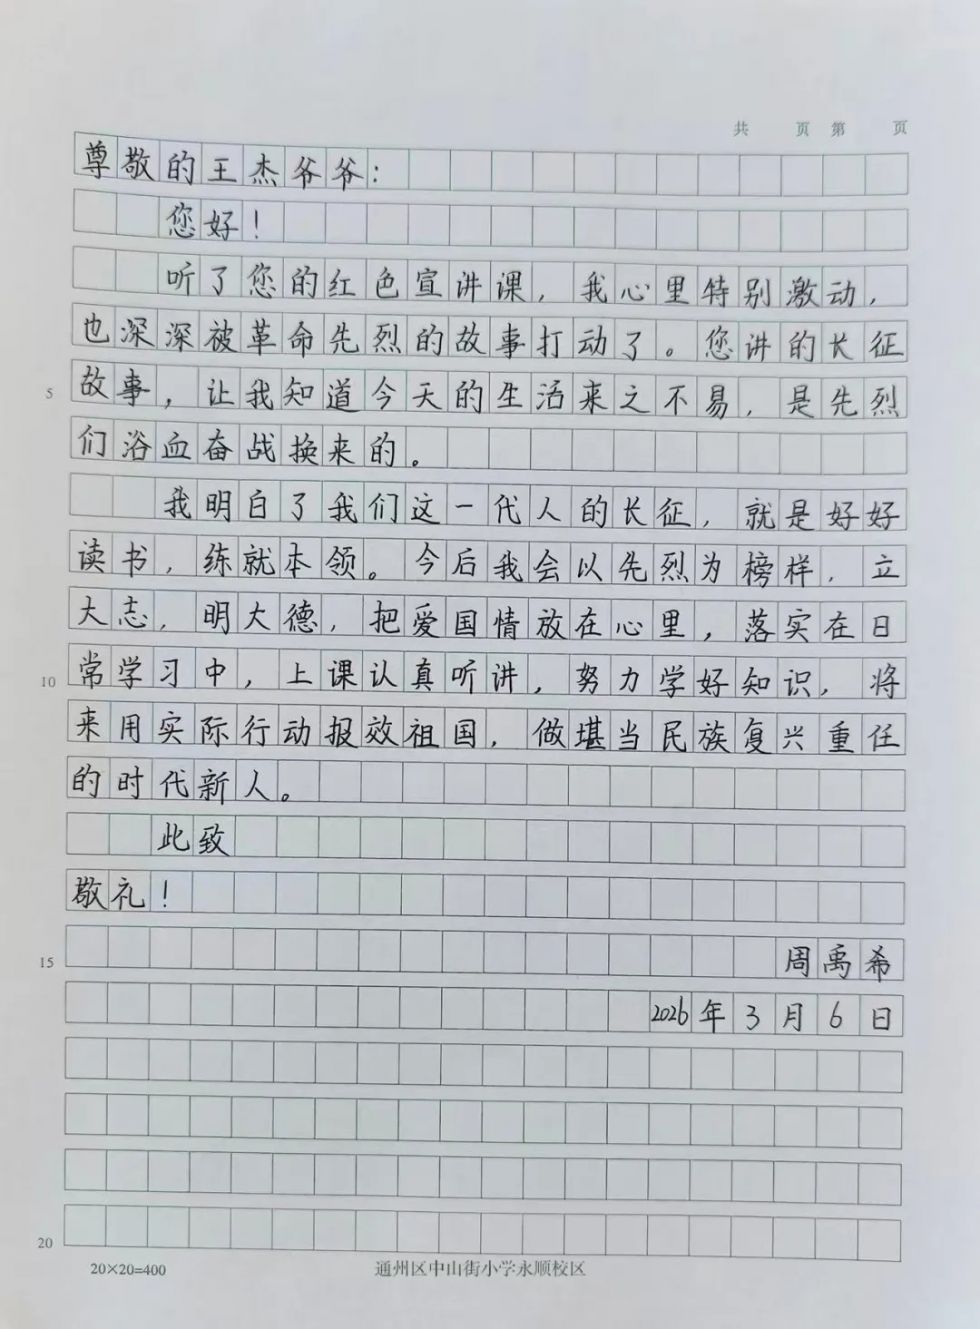 共 页 第 页
尊敬的王杰爷爷：
您好！
听了您的红色宣讲课，我心里特别激动，
也深深被革命先烈的故事打动了。您讲的长征
5 故事，让我知道今天的生活来之不易，是先烈
们浴血奋战换来的。
我明白了我们这一代人的长征，就是好好
读书，练就本领。今后我会以先烈为榜样，立
大志，明大德，把爱国情放在心里，落实在日
10 常学习中，上课认真听讲，努力学好知识，将
来用实际行动报效祖国，做堪当民族复兴重任
的时代新人。
此致
敬礼！
15 周禹希
2026年3月6日
20
20×20=400 通州区中山街小学永顺校区